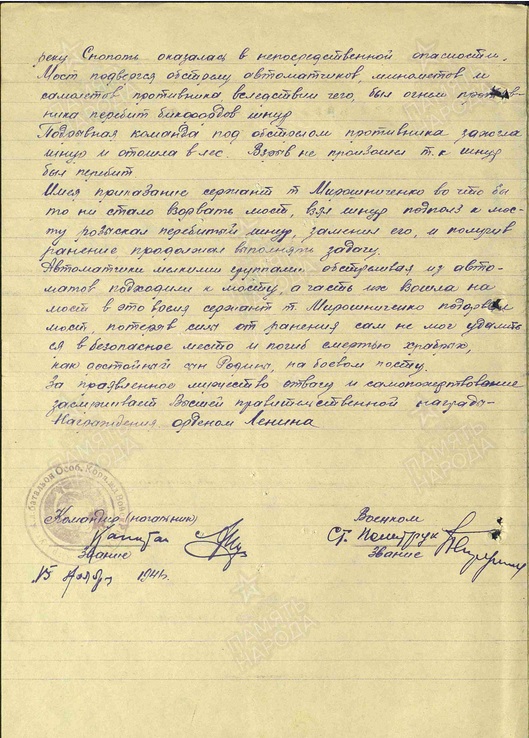 реку Снопоть оказалась в непосредственной опасности.
Мост подвергся обстрелу автоматчиков, минометов и
самолетов противника вследствии чего, был огнем против-
ника перебит бикфордов шнур
Подрывная команда под обстрелом противника зажгла
шнур и отошла в лес. Взрыв не произошел т.к шнур
был перебит.
Имея приказание сержант т. Мирошниченко во что бы
то ни стало взорвать мост, взял шнур подполз к мос-
ту розыскал перебитый шнур, заменил его, и получив
ранение продолжал выполнять задачу.
Автоматчики мелкими группами обстреливая из авто-
матов подходили к мосту, а часть их взошла на
мост в это время сержант т. Мирошниченко подорвал
мост, потеряв силы от ранения сам не мог удалить
ся в безопасное место и погиб смертью храбрых,
как достойный сын Родины, на боевом посту.
За проявленное мужество отвагу и самопожертвование
заслуживает Высшей правительственной награды-
Награждения орденом Ленина
батальон Особ.
Командир (начальник) Военком
Капитан Ст. Политрук
Звание Звание
15 Ноября 1941г.
ПАМЯТЬ
НАРОДА